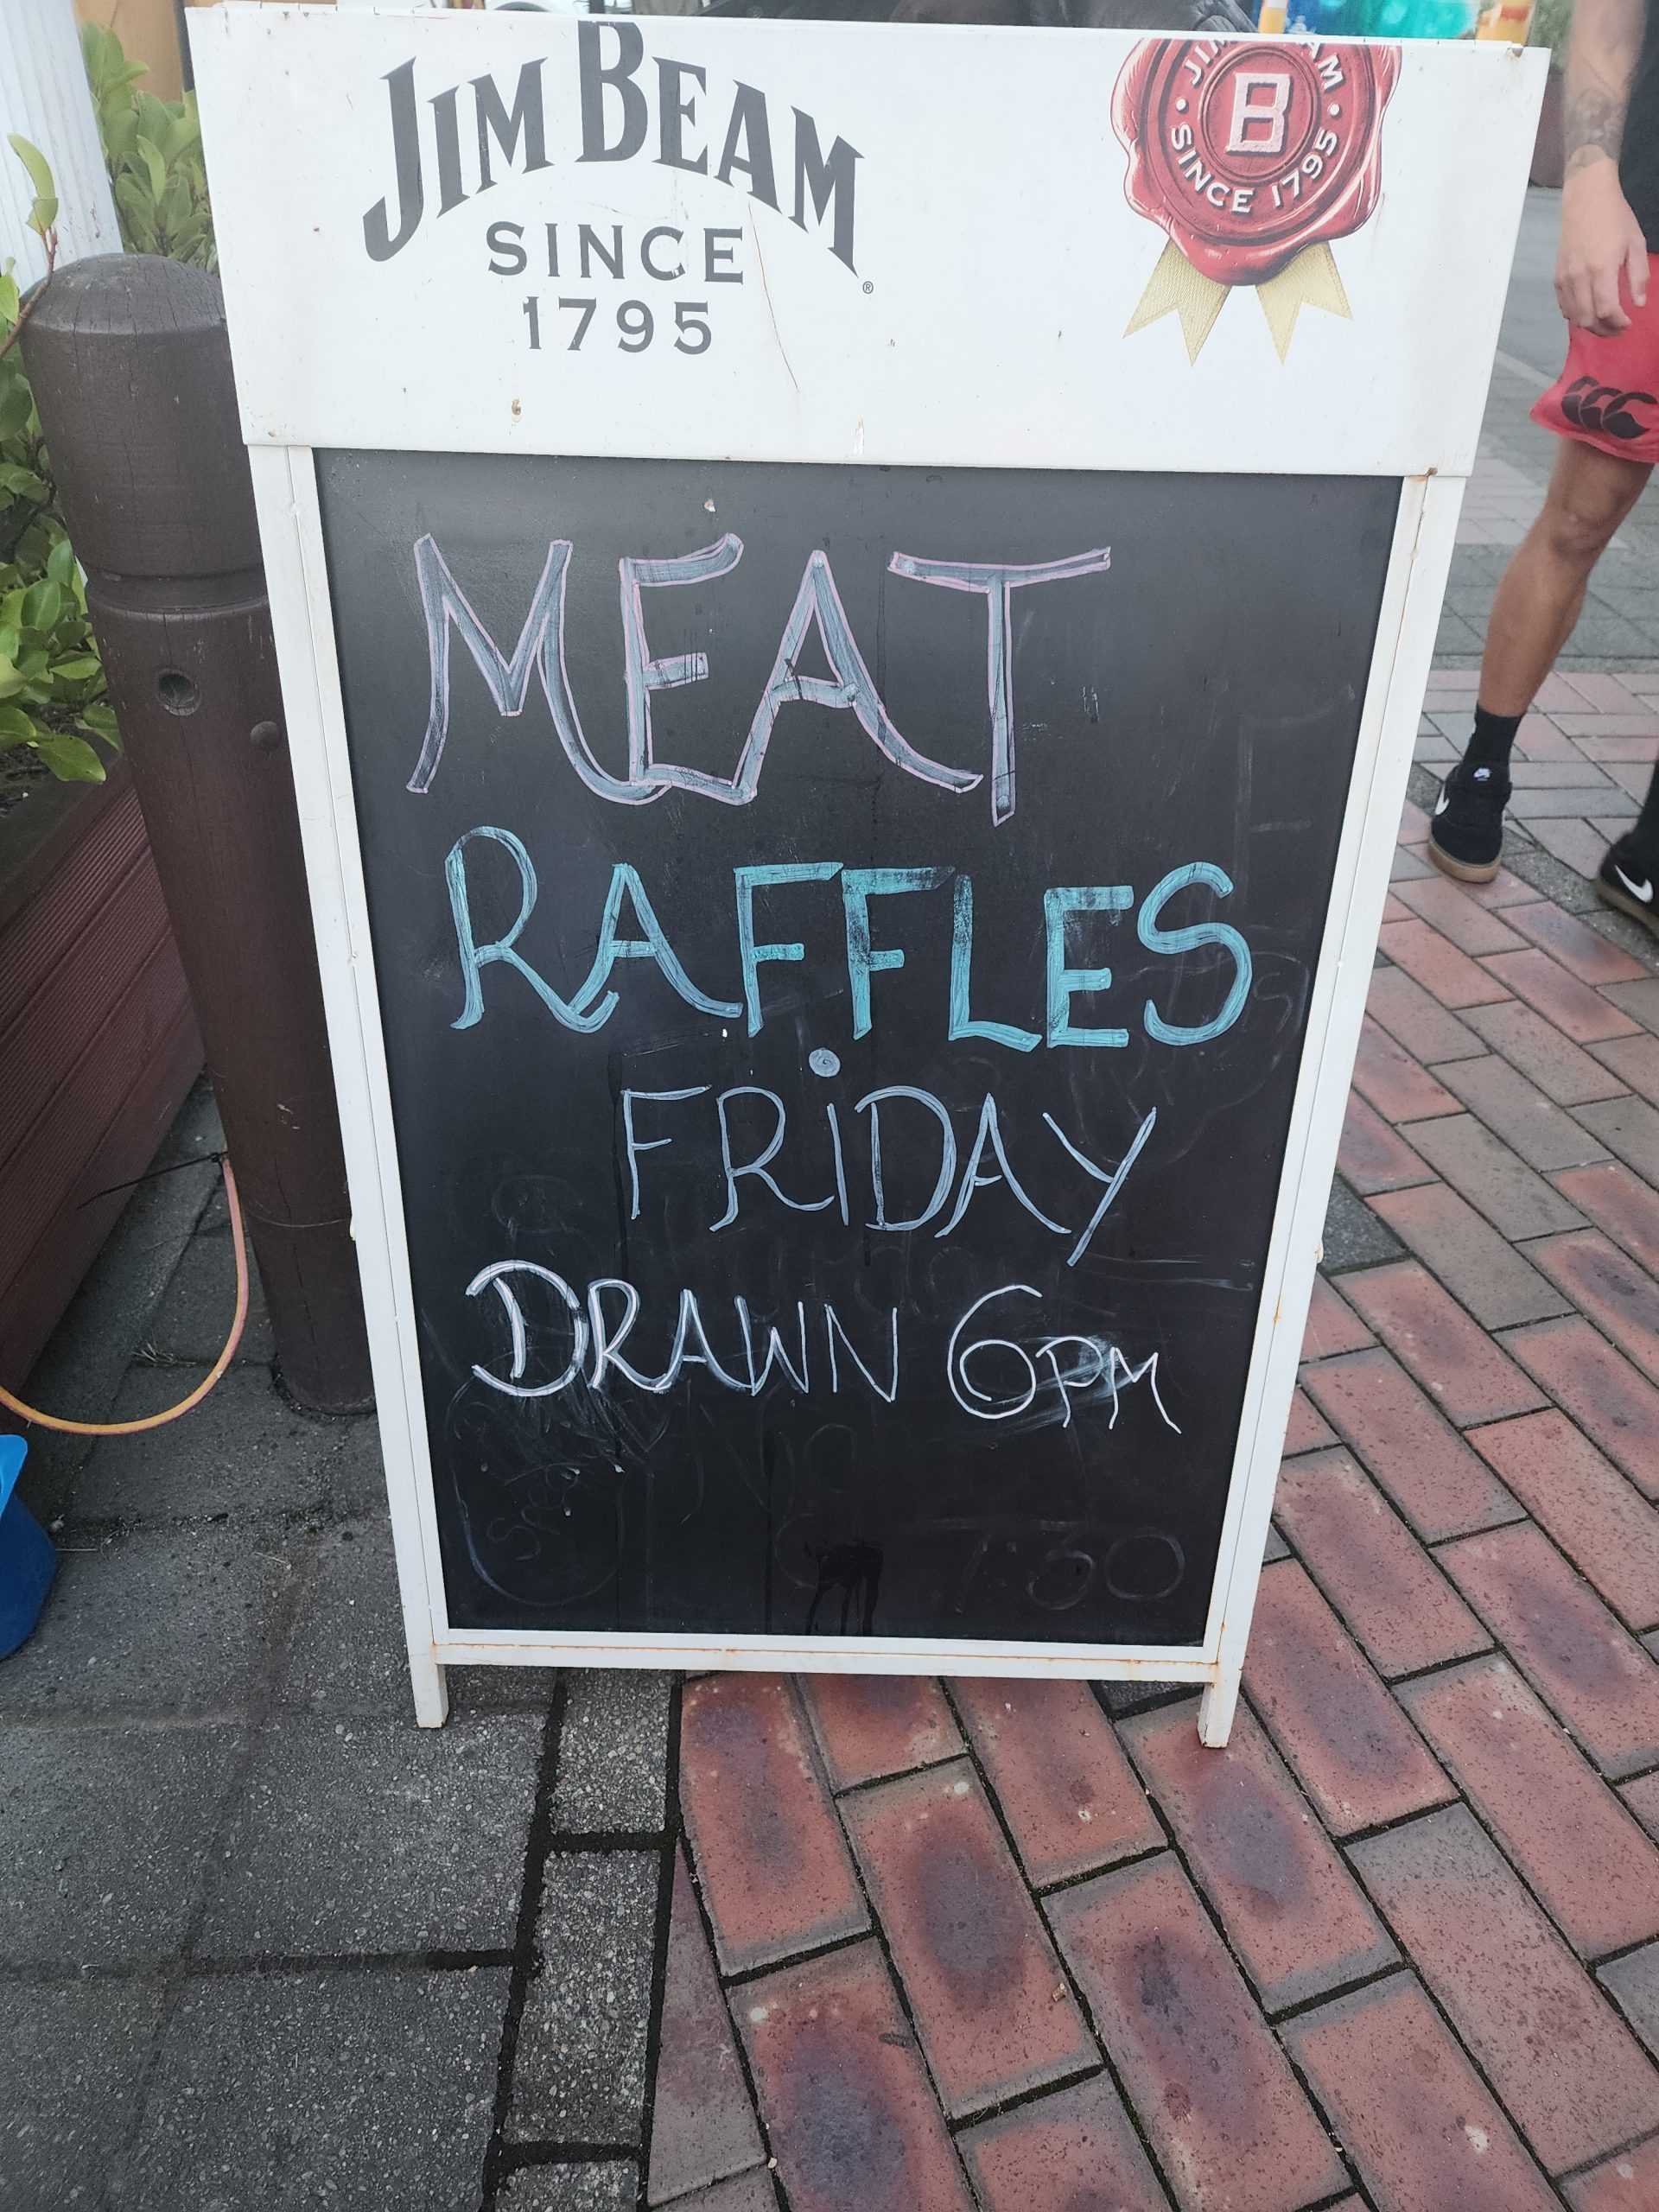 JIM BEAM
SINCE
1795
JIM BEAM
B
SINCE 1795
MEAT
RAFFLES
FRiDAY
DRAWN 6PM
7:30